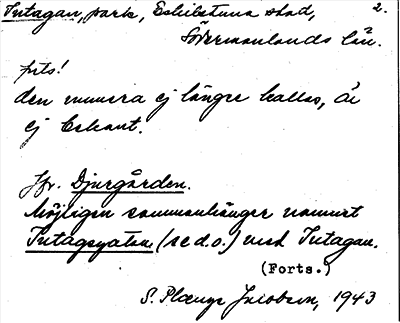 Intagan, park, Eskilstuna stad, 2.
Södermanlands län.
forts!
den numera ej längre kallas, är
ej bekant.
Jfr. Djurgården.
Möjligen sammanhänger namnet
Intagsgatan (se d.o.) med Intagan.
(Forts.)
S. Plænge Jacobson, 1943